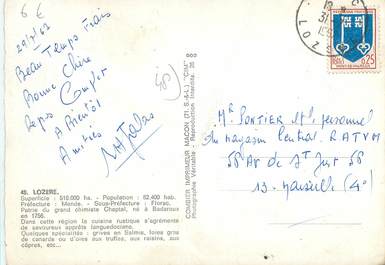 6 €
Beau Temps Frais
Bonne Chère
Repos Complet
A Bientôt
Amitiés
48)
45. LOZERE.
Superficie : 518.000 ha. - Population : 82.400 hab.
Préfecture : Mende. - Sous-Préfecture : Florac.
Patrie du grand chimiste Chaptal, né à Badaroux
en 1756.
Dans cette région la cuisine rustique s'agrémente
de savoureux apprêts languedociens.
Quelques spécialités : grives en Salmis, foies gras
de canards ou d'oies aux truffes, aux raisins, aux
câpres, etc...
COMBIER IMPRIMEUR MACON (71-S.-&-L.) "CIM"
Photographie Véritable - Reproduction Interdite
0,25
Mr PONTIER
du magasin Central RATVM
13. Marseille (4°)